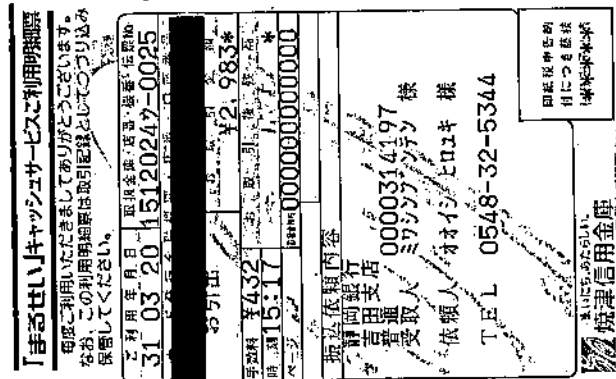 「まるせい」キャッシュサービスご利用明細票
毎度ご利用いただきましてありがとうございます。
なお、この利用明細票は取引記録としてのつり込み
保管してください。
ご利用年月日 取扱金庫・店番・機番・伝票No.
31 03 20 1512024ケ-0025
お引出 ¥2,983*
お取引後残高
手数料 ¥432
時刻 15:17
ページ 00000000000000
振込依頼内容
静岡銀行
吉田支店
普通 0000314197
受取人 様
依頼人 オオイシ ヒロユキ 様
TEL 0548-32-5344
印紙税申告納
付につき藤枝
まいにち、あたらしい。
焼津信用金庫